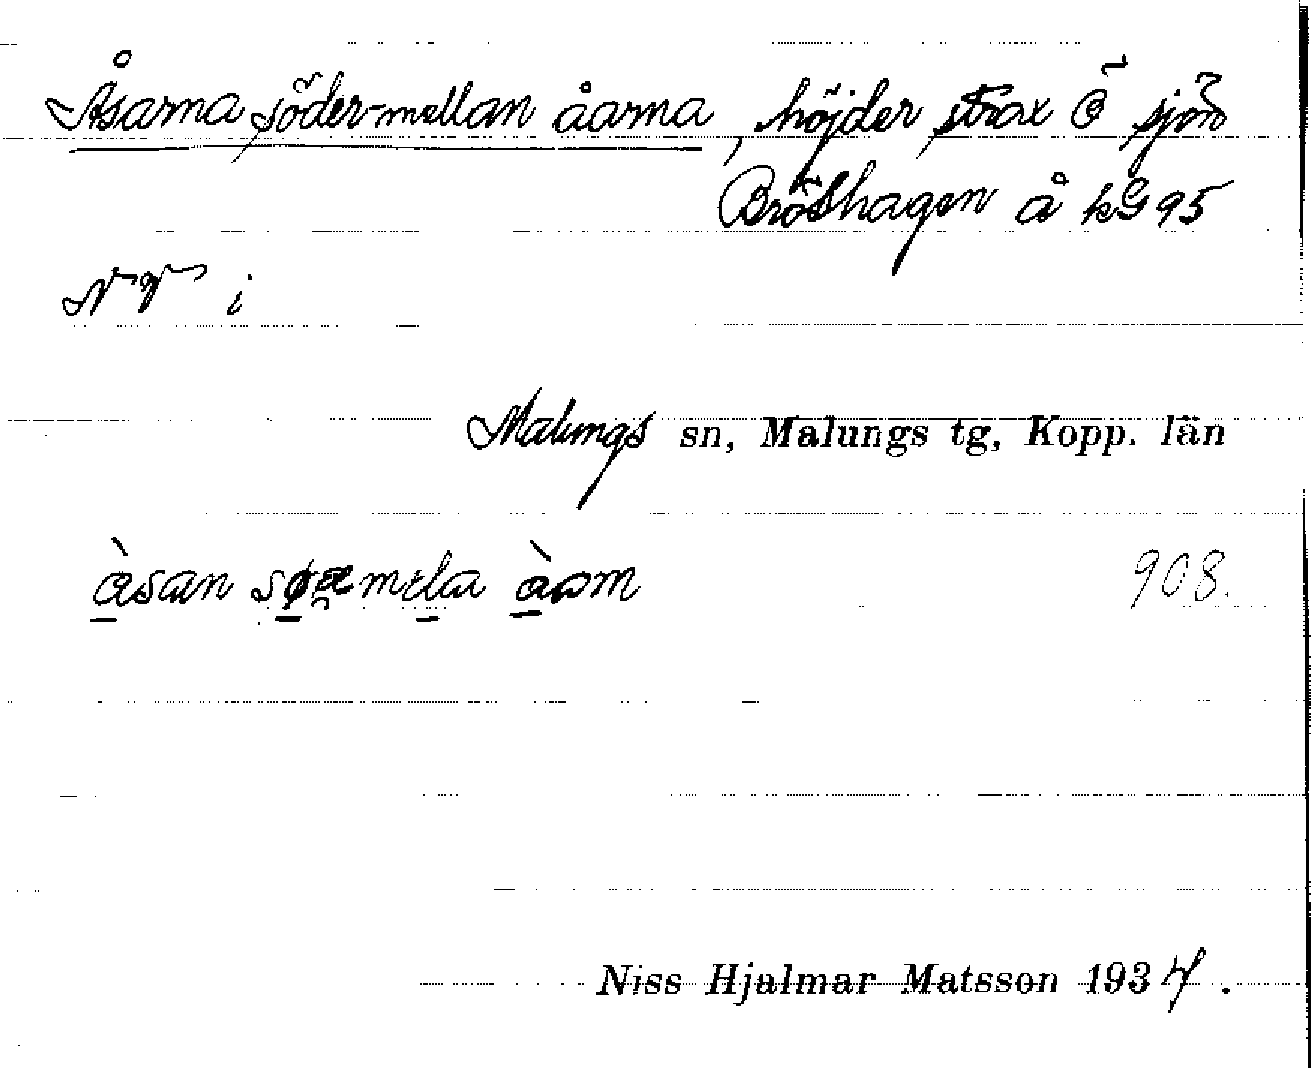 Åsarna söder-mellan åarna, höjder strax Ö sjön
Bröshagen å kG 95
NV i
Malungs sn, Malungs tg, Kopp. län
àsan søæ mɛla àam 908.
Niss Hjalmar Matsson 1934.